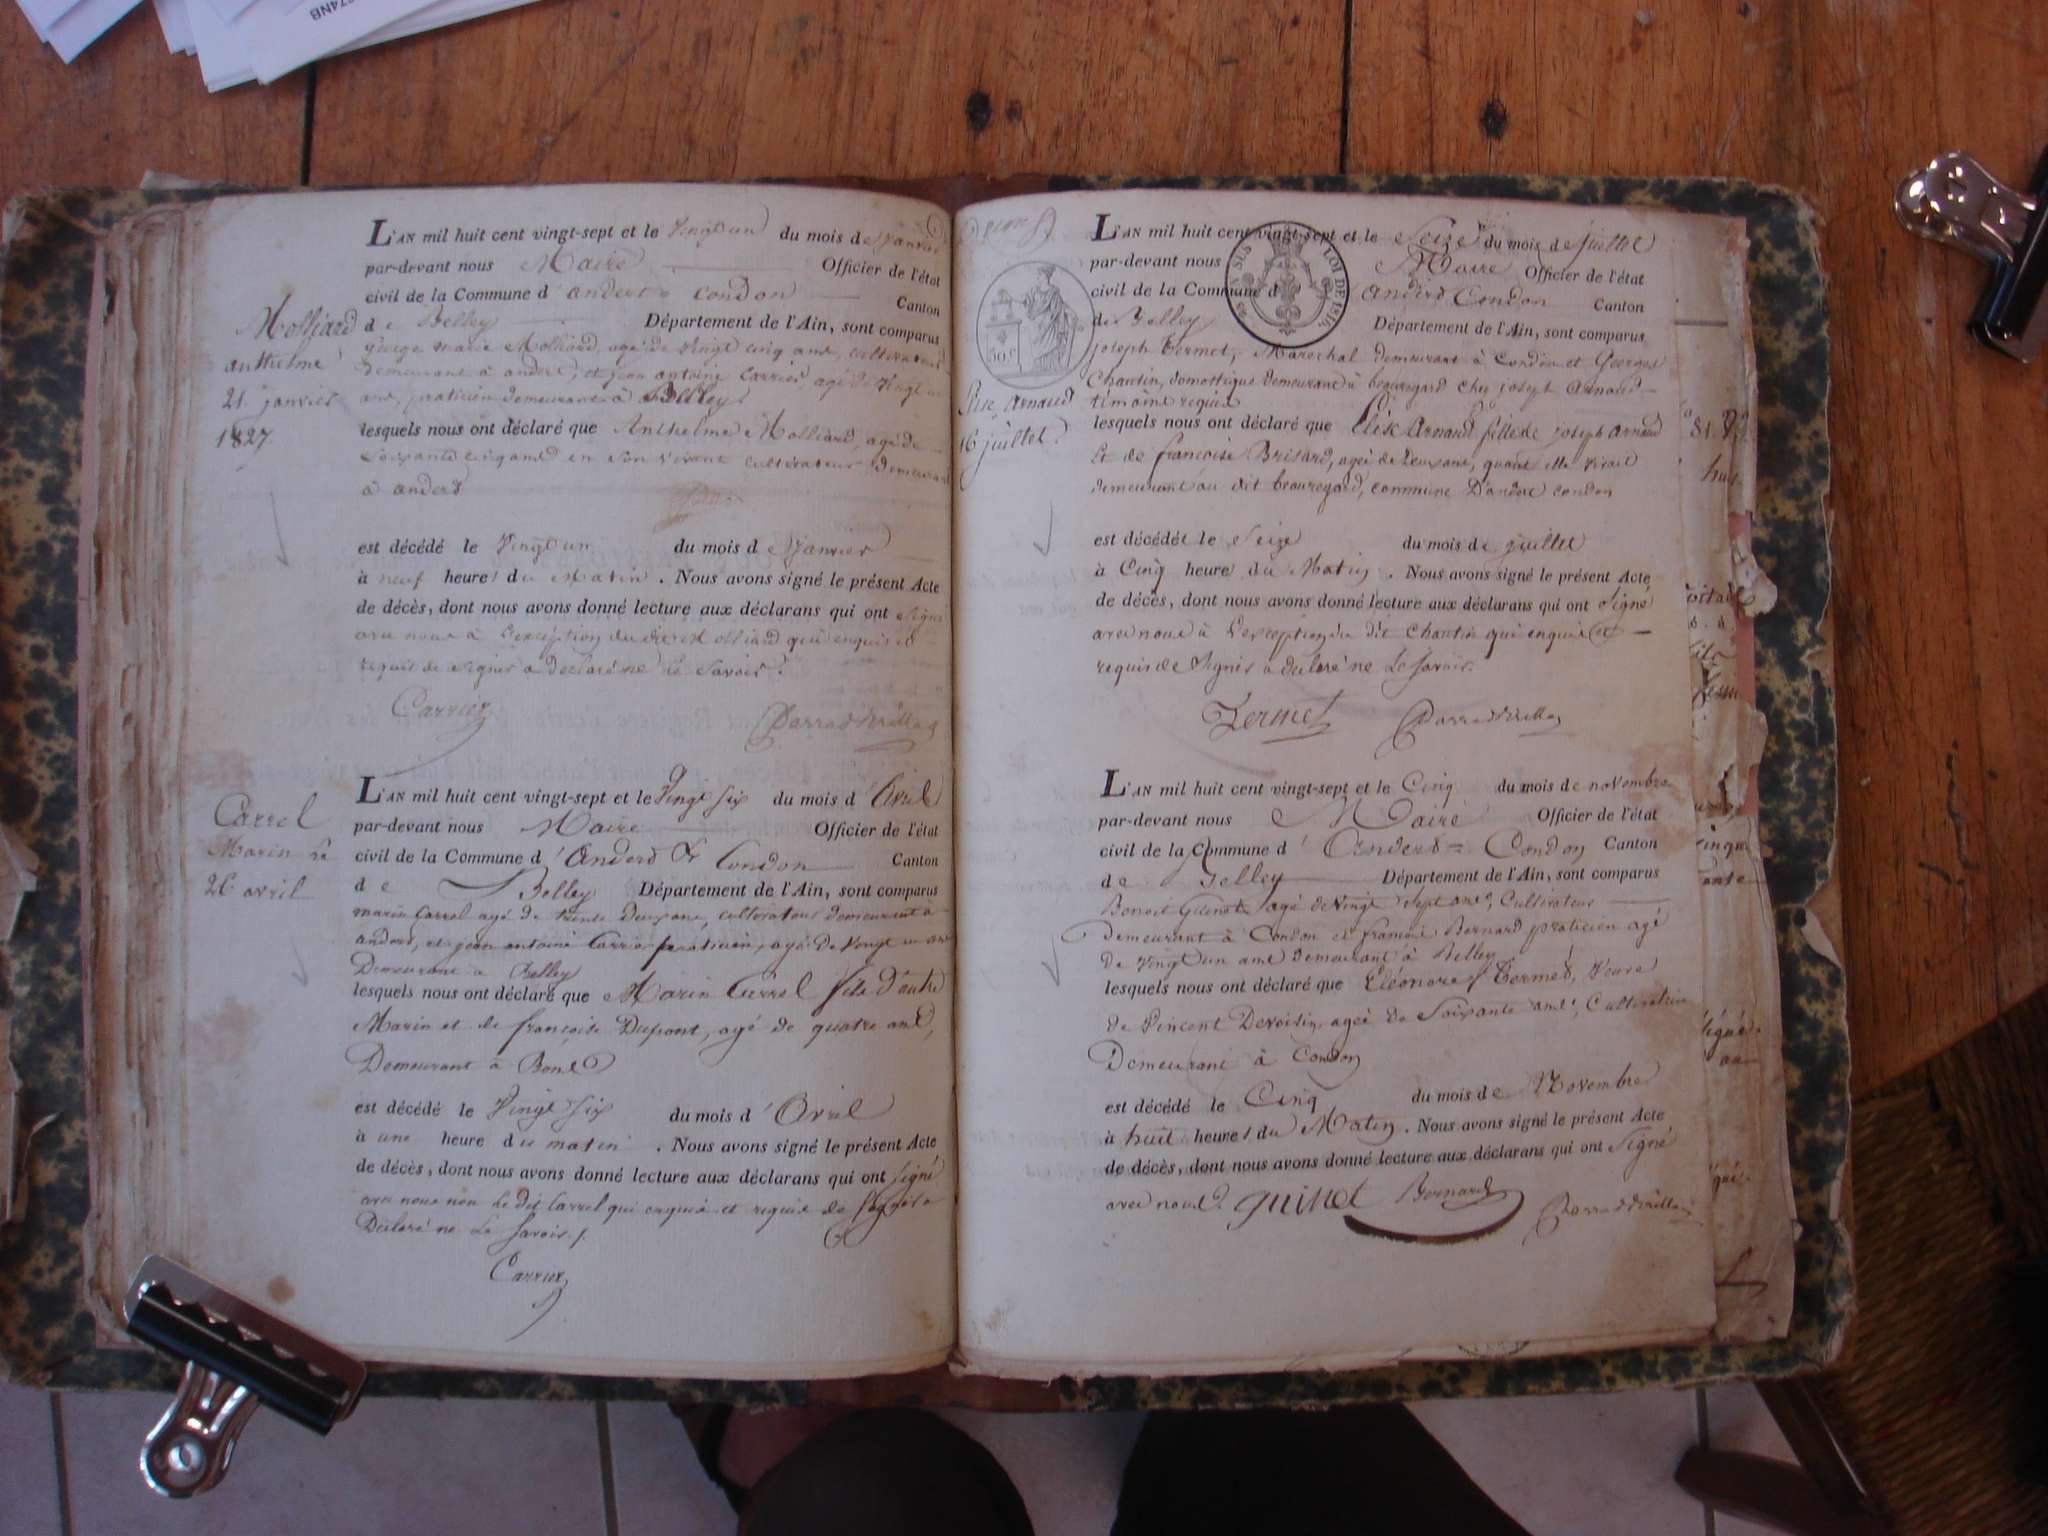 674NB
L'AN mil huit cent vingt-sept et le vingt un du mois de janvier
par-devant nous Maire Officier de l'état
civil de la Commune d'andert Condon Canton
de Belley Département de l'Ain, sont comparus
marie Molliard, agé de vingt cinq ans, cultivateur
demeurant à andert, et jean antoine Carrier, agé de vingt
ans, praticien demeurant à Belley
lesquels nous ont déclaré que Anthelme Molliard, agé de
soixante cinq ans en son vivant cultivateur demeurant
à andert
est décédé le vingt un du mois de janvier
à neuf heures du Matin. Nous avons signé le présent Acte
de décès, dont nous avons donné lecture aux déclarans qui ont signé
avec nous à l'exception du dit Molliard qui enquis et
requis de signer a declaré ne le savoir.
Carrier
Molliard
anthelme
21 janvier
1827
L'AN mil huit cent vingt-sept et le vingt six du mois d'avril
par-devant nous Maire Officier de l'état
civil de la Commune d'Andert & Condon Canton
de Belley Département de l'Ain, sont comparus
marin Carrel agé de trente deux ans, cultivateur demeurant à
andert, et jean antoine Carrier praticien, agé de vingt un ans
Demeurant à Belley
lesquels nous ont déclaré que Marin Carrel fils d'autre
Marin et de françoise Dupont, agé de quatre ans,
Demeurant à
est décédé le vingt six du mois d'avril
à une heure du matin. Nous avons signé le présent Acte
de décès, dont nous avons donné lecture aux déclarans qui ont signé
avec nous non le dit Carrel qui enquis et requis de signer a
Declaré ne le savoir./.
Carrier
Carrel
Marin le
26 avril
L'AN mil huit cent vingt-sept et le seize du mois de juillet
par-devant nous Maire Officier de l'état
civil de la Commune d andert Condon Canton
de Belley Département de l'Ain, sont comparus
joseph Termet, Marechal demeurant à Condon et Georges
Chantin, domestique demeurant à beauregard chez joseph Arnaud
témoins requis
lesquels nous ont déclaré que Elise Arnaud fille de joseph Arnaud
Et de françoise Brisard, ageé de deux ans, quant elle vivait
demeurant au dit beauregard, commune D'andert condon
est décédée le seize du mois de juillet
à Cinq heure du Matin. Nous avons signé le présent Acte
de décès, dont nous avons donné lecture aux déclarans qui ont signé
avec nous à l'exception du dit Chantin qui enquis et
requis de signer a declaré ne le savoir.
Termet
LOI DE 1816.
50 c
Elise Arnaud
16 juillet
L'AN mil huit cent vingt-sept et le Cinq du mois de novembre
par-devant nous Maire Officier de l'état
civil de la Commune d'Andert = Condon Canton
de Belley Département de l'Ain, sont comparus
Benoit Guinet agé de vingt sept ans, Cultivateur
Demeurant à Condon et françois Bernard praticien agé
De vingt un ans demeurant à Belley
lesquels nous ont déclaré que Eléonore Termet, Veuve
de Vincent Devoisin, ageé de soixante ans, Cultivatrice
Demeurant à Condon
est décédé le Cinq du mois de Novembre
à huit heures du Matin. Nous avons signé le présent Acte
de décès, dont nous avons donné lecture aux déclarans qui ont signé
avec nous. guinet Bernard